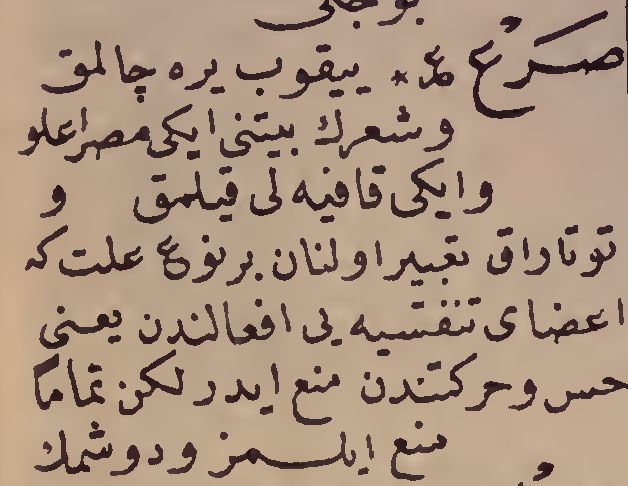 صَرْعٌ ع * ييقوب يره چالمق
و شعرك بيتنى ايكى مصراعلو
و ايكى قافيه لى قيلمق و
توتاراق تعبير اولنان بر نوع علت كه
اعضاى تنفسيه يى افعالندن يعنى
حس و حركتندن منع ايدر لكن تماما
منع ايلمز و دوشمك